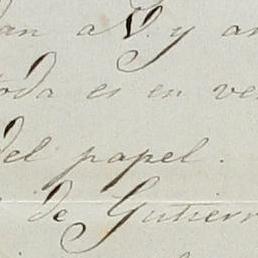 an a V. y an
oda es en ve
del papel.
de Gutierr